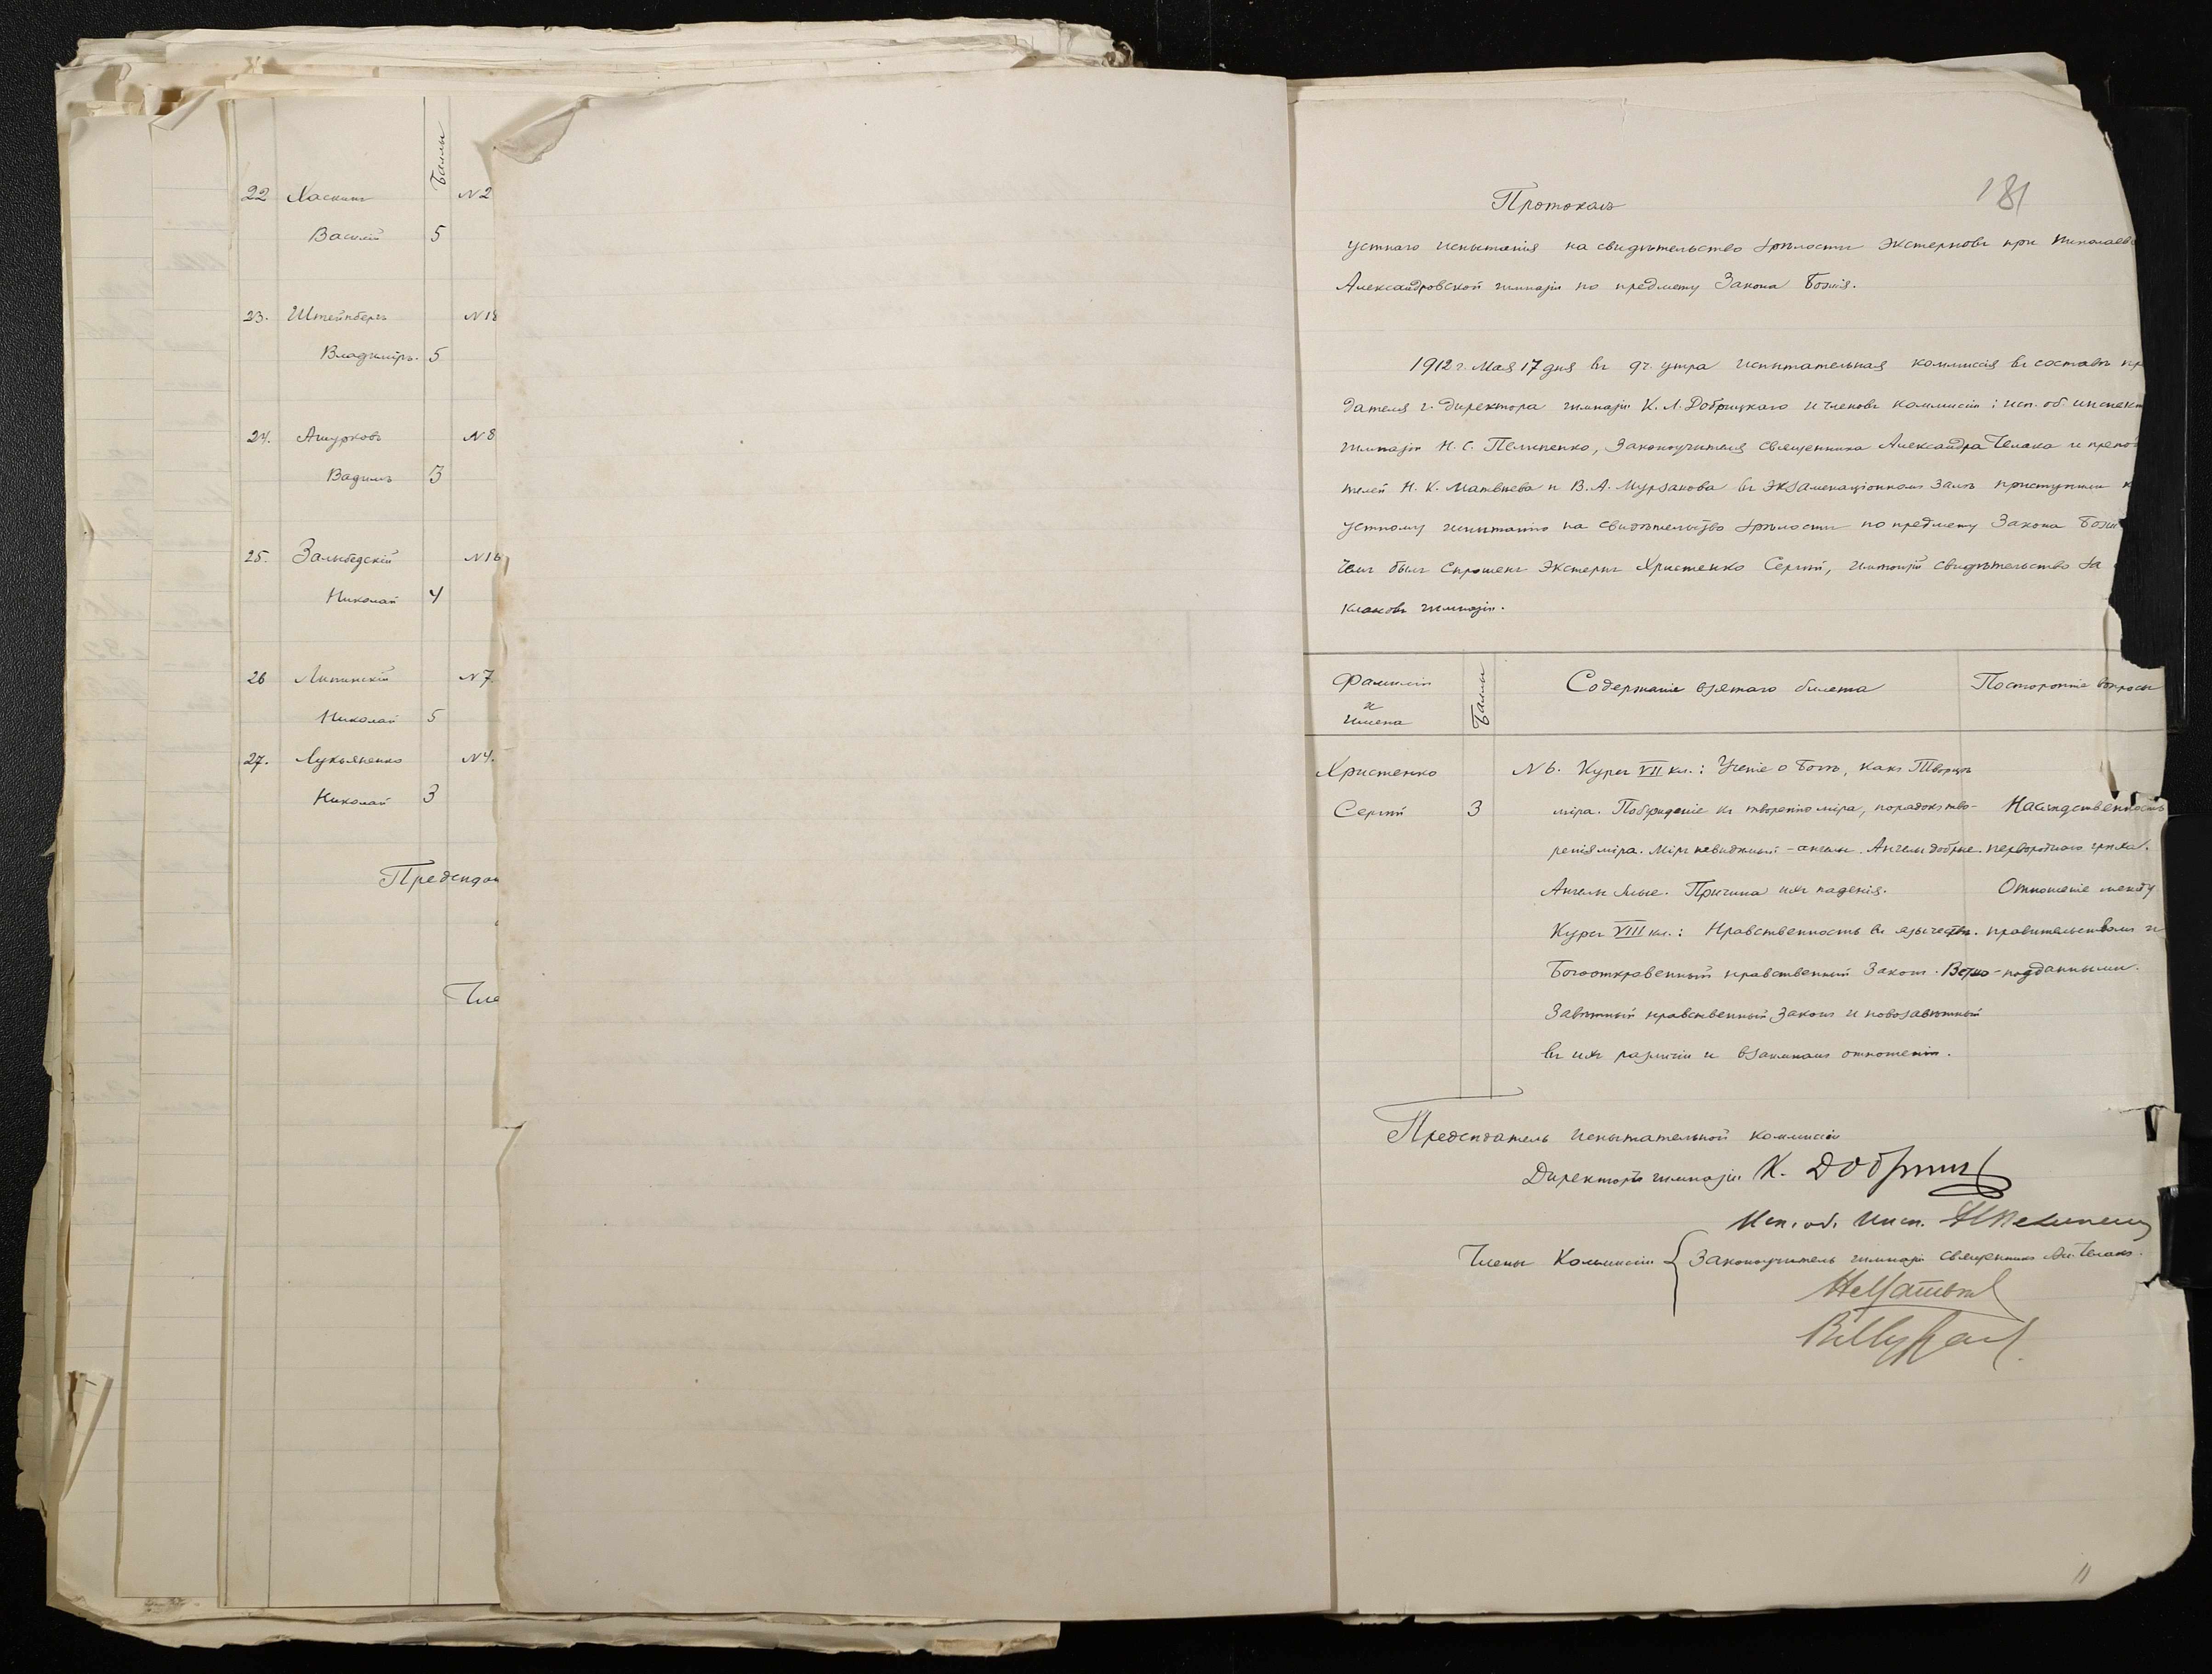 Баллы
22 Хаскинъ №2
Василій 5
23. Штейнбергъ №18
Владиміръ. 5
24. Ашурковъ №8
Вадимъ 3
25. Залыбедскій №16
Николай 4
26 Липинскій №7.
Николай 5
27. Лукьяненко №4.
Николай 3
Предсѣдат
Чле
181
Протоколъ
устнаго испытанія на свидѣтельство зрѣлости экстерновъ при Николаевс
Александровской гимназіи по предмету Закона Божія.
1912 г. Мая 17 дня въ 9 ч. утра испытательная коммиссія въ составѣ пр
дателя г. директора гимназіи К. Л. Добрицкаго и членовъ коммисіи: исп. об. инспект
гимназіи Н. С. Пелипенко, Законоучителя священника Александра Челака и препод
телей Н. К. Матвѣева и В. А. Мурзанова въ экзаменаціонномъ залѣ приступили к
устному испытанію на свидѣтельство зрѣлости по предмету Закона Божі
Былъ спрошенъ экстернъ Христенко Сергѣй, имѣющій свидѣтельство за
классовъ гимназіи.
Фамиліи и имена Баллы Содержаніе взятаго билета Посторонніе вопросы
Христенко № 6. Курсъ VII кл.: Ученіе о Богѣ, какъ Творцѣ
Сергѣй 3 міра. Побужденіе къ творенію міра, порядокъ тво- Наслѣдственность
ренія міра. Міръ невидимый - ангелы. Ангелы добрые. первороднаго грѣха.
Ангелы злые. Причина ихъ паденія. Отношеніе между
Курсъ VIII кл.: Нравственность въ язычествѣ. правительствомъ и
Богооткровенный нравственный Законъ. Ветхо- подданными.
Завѣтный нравственный Законъ и новозавѣтный
въ ихъ различіи и взаимномъ отношеніи.
Предсѣдатель испытательной коммисіи
Директоръ гимназіи К. Добриц
Исп. об. Инсп. Н Пелипенко
Члены Коммиссіи { Законоучитель гимназіи священникъ Ал. Челакъ.
Н Матвѣев
11